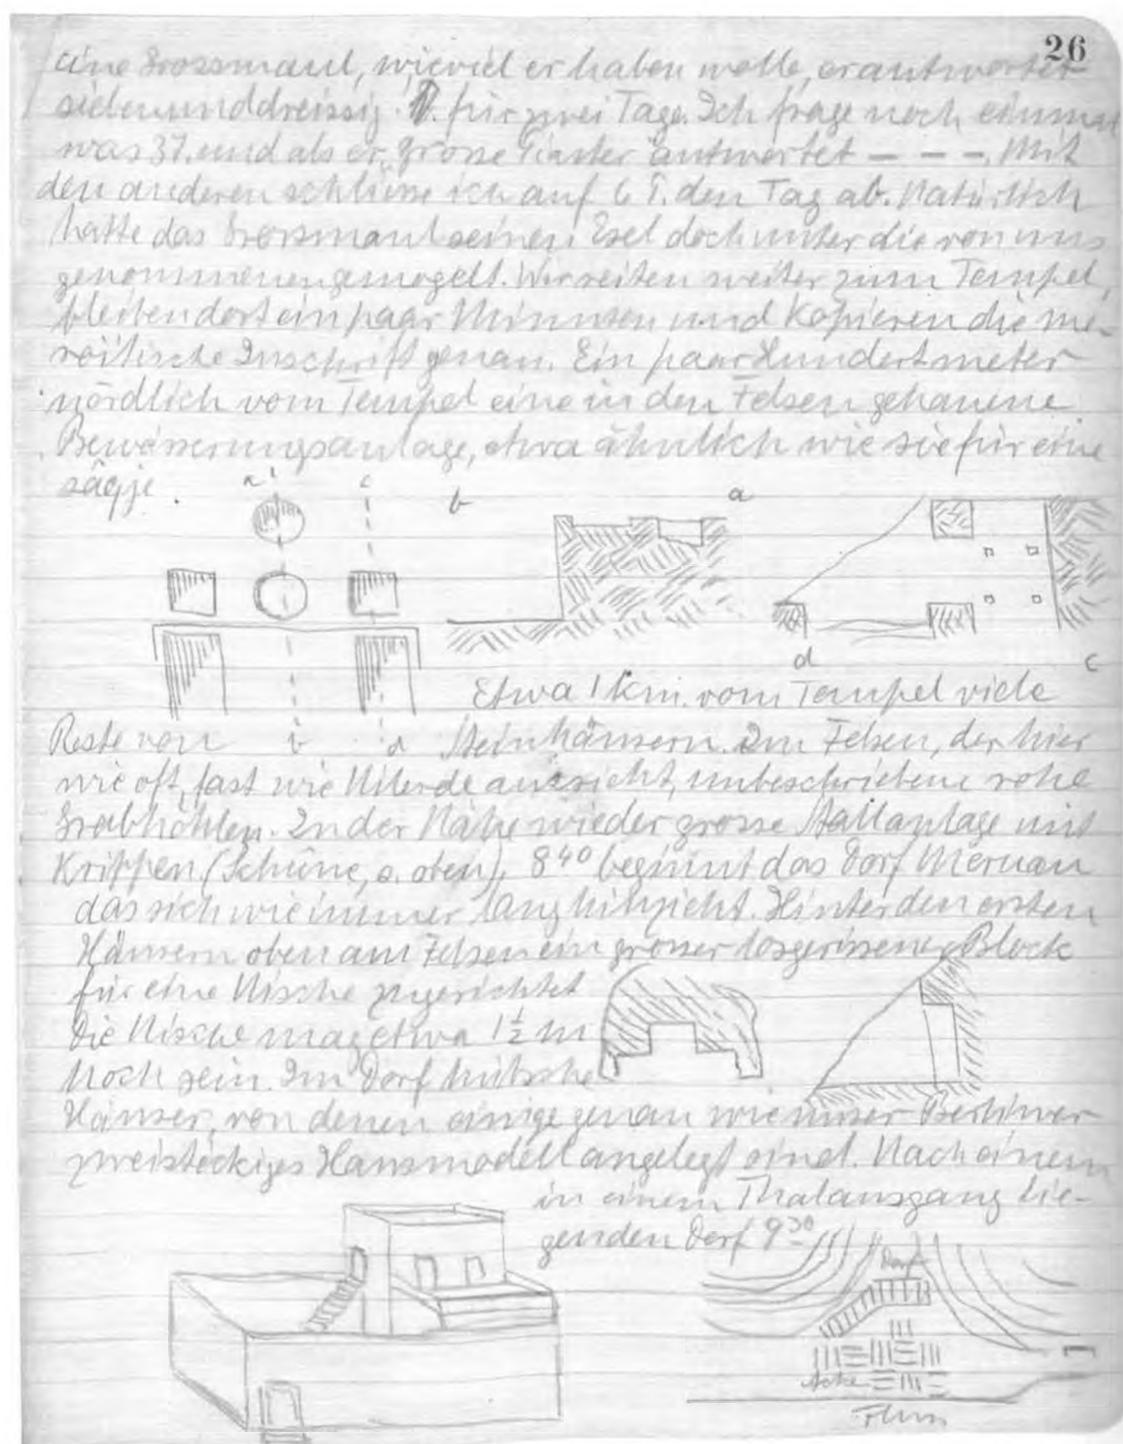 26
eine Grossmaul, wieviel er haben wolle, er antwortet
siebenunddreissig P. für zwei Tage. Ich frage noch einmal
was 37. und als er, grosse Piaster antwortet – – –. Mit
den anderen schliesse ich auf 6 P. den Tag ab. Natürlich
hatte das Grossmaul seinen Esel doch unter die von uns
genommenen gemogelt. Wir reiten weiter zum Tempel,
bleiben dort ein paar Minuten und kopieren die me-
roitische Inschrift genau. Ein paar Hundert meter
nördlich vom Tempel eine in den Felsen gehauene
Bewässerungsanlage, etwa ähnlich wie sie für eine
sâqje.
a c b a
d c
Etwa 1 km. vom Tempel viele
Reste von b d Steinhäusern. Im Felsen, der hier
wie oft, fast wie Nilerde aussieht, unbeschriebene rohe
Grabhöhlen. In der Nähe wieder grosse Stallanlage mit
Krippen (Schûne, s. oben), 8⁴⁰ beginnt das Dorf Meruau
das sich wie immer lang hinzieht. Hinter den ersten
Häusern oben am Felsen ein grosser losgerissener Block
für eine Nische zugerichtet
Die Nische mag etwa 1½ m
hoch sein. Im Dorf hübsche
Häuser, von denen einige genau wie unser Berliner
zweistöckiges Hausmodell angelegt sind. Nach einem
in einem Thalausgang lie-
genden Dorf 9³⁰
Dorf
Äcker
Fluss